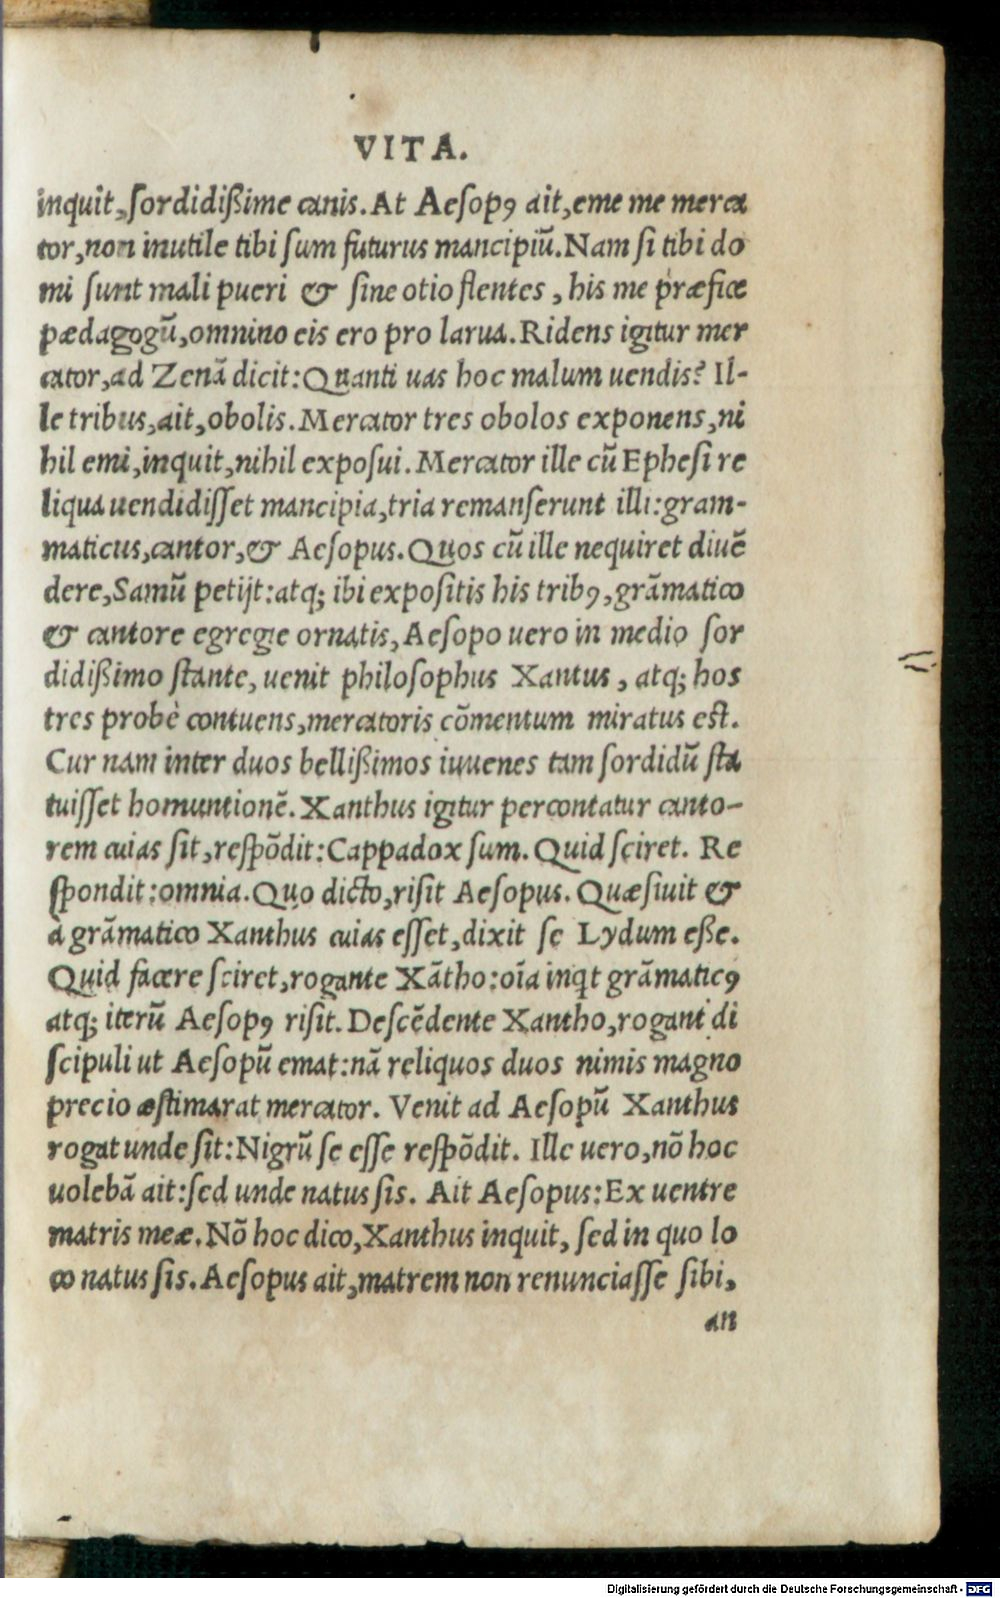 VITA.
inquit, sordidißime canis. At Aesopꝰ ait, eme me merca
tor, non inutile tibi sum futurus mancipiũ. Nam si tibi do
mi sunt mali pueri & sine otio flentes, his me præfice
pædagogũ, omnino eis ero pro larua. Ridens igitur mer
cator, ad Zenã dicit: Quanti uas hoc malum uendis? Il-
le tribus, ait, obolis. Mercator tres obolos exponens, ni
hil emi, inquit, nihil exposui. Mercator ille cũ Ephesi re
liqua uendidisset mancipia, tria remanserunt illi: gram-
maticus, cantor, & Aesopus. Quos cũ ille nequiret diuẽ
dere, Samũ petijt: atq; ibi expositis his tribꝰ, grãmatico
& cantore egregie ornatis, Aesopo uero in medio sor
didißimo stante, uenit philosophus Xantus, atq; hos
tres probè contuens, mercatoris cõmentum miratus est.
Cur nam inter duos bellißimos iuuenes tam sordidũ sta
tuisset homuntionẽ. Xanthus igitur percontatur canto-
rem cuias sit, respõdit: Cappadox sum. Quid sciret. Re
spondit: omnia. Quo dicto, risit Aesopus. Quæsiuit &
à grãmatico Xanthus cuias esset, dixit se Lydum eße.
Quid facere sciret, rogante Xãtho: oĩa inqt grãmaticꝰ
atq; iterũ Aesopꝰ risit. Descẽdente Xantho, rogant di
scipuli ut Aesopũ emat: nã reliquos duos nimis magno
precio æstimarat mercator. Venit ad Aesopũ Xanthus
rogat unde sit: Nigrũ se esse respõdit. Ille uero, nõ hoc
uolebã ait: sed unde natus sis. Ait Aesopus: Ex uentre
matris meæ. Nõ hoc dico, Xanthus inquit, sed in quo lo
co natus sis. Aesopus ait, matrem non renunciasse sibi,
an
Digitalisierung gefördert durch die Deutsche Forschungsgemeinschaft - DFG